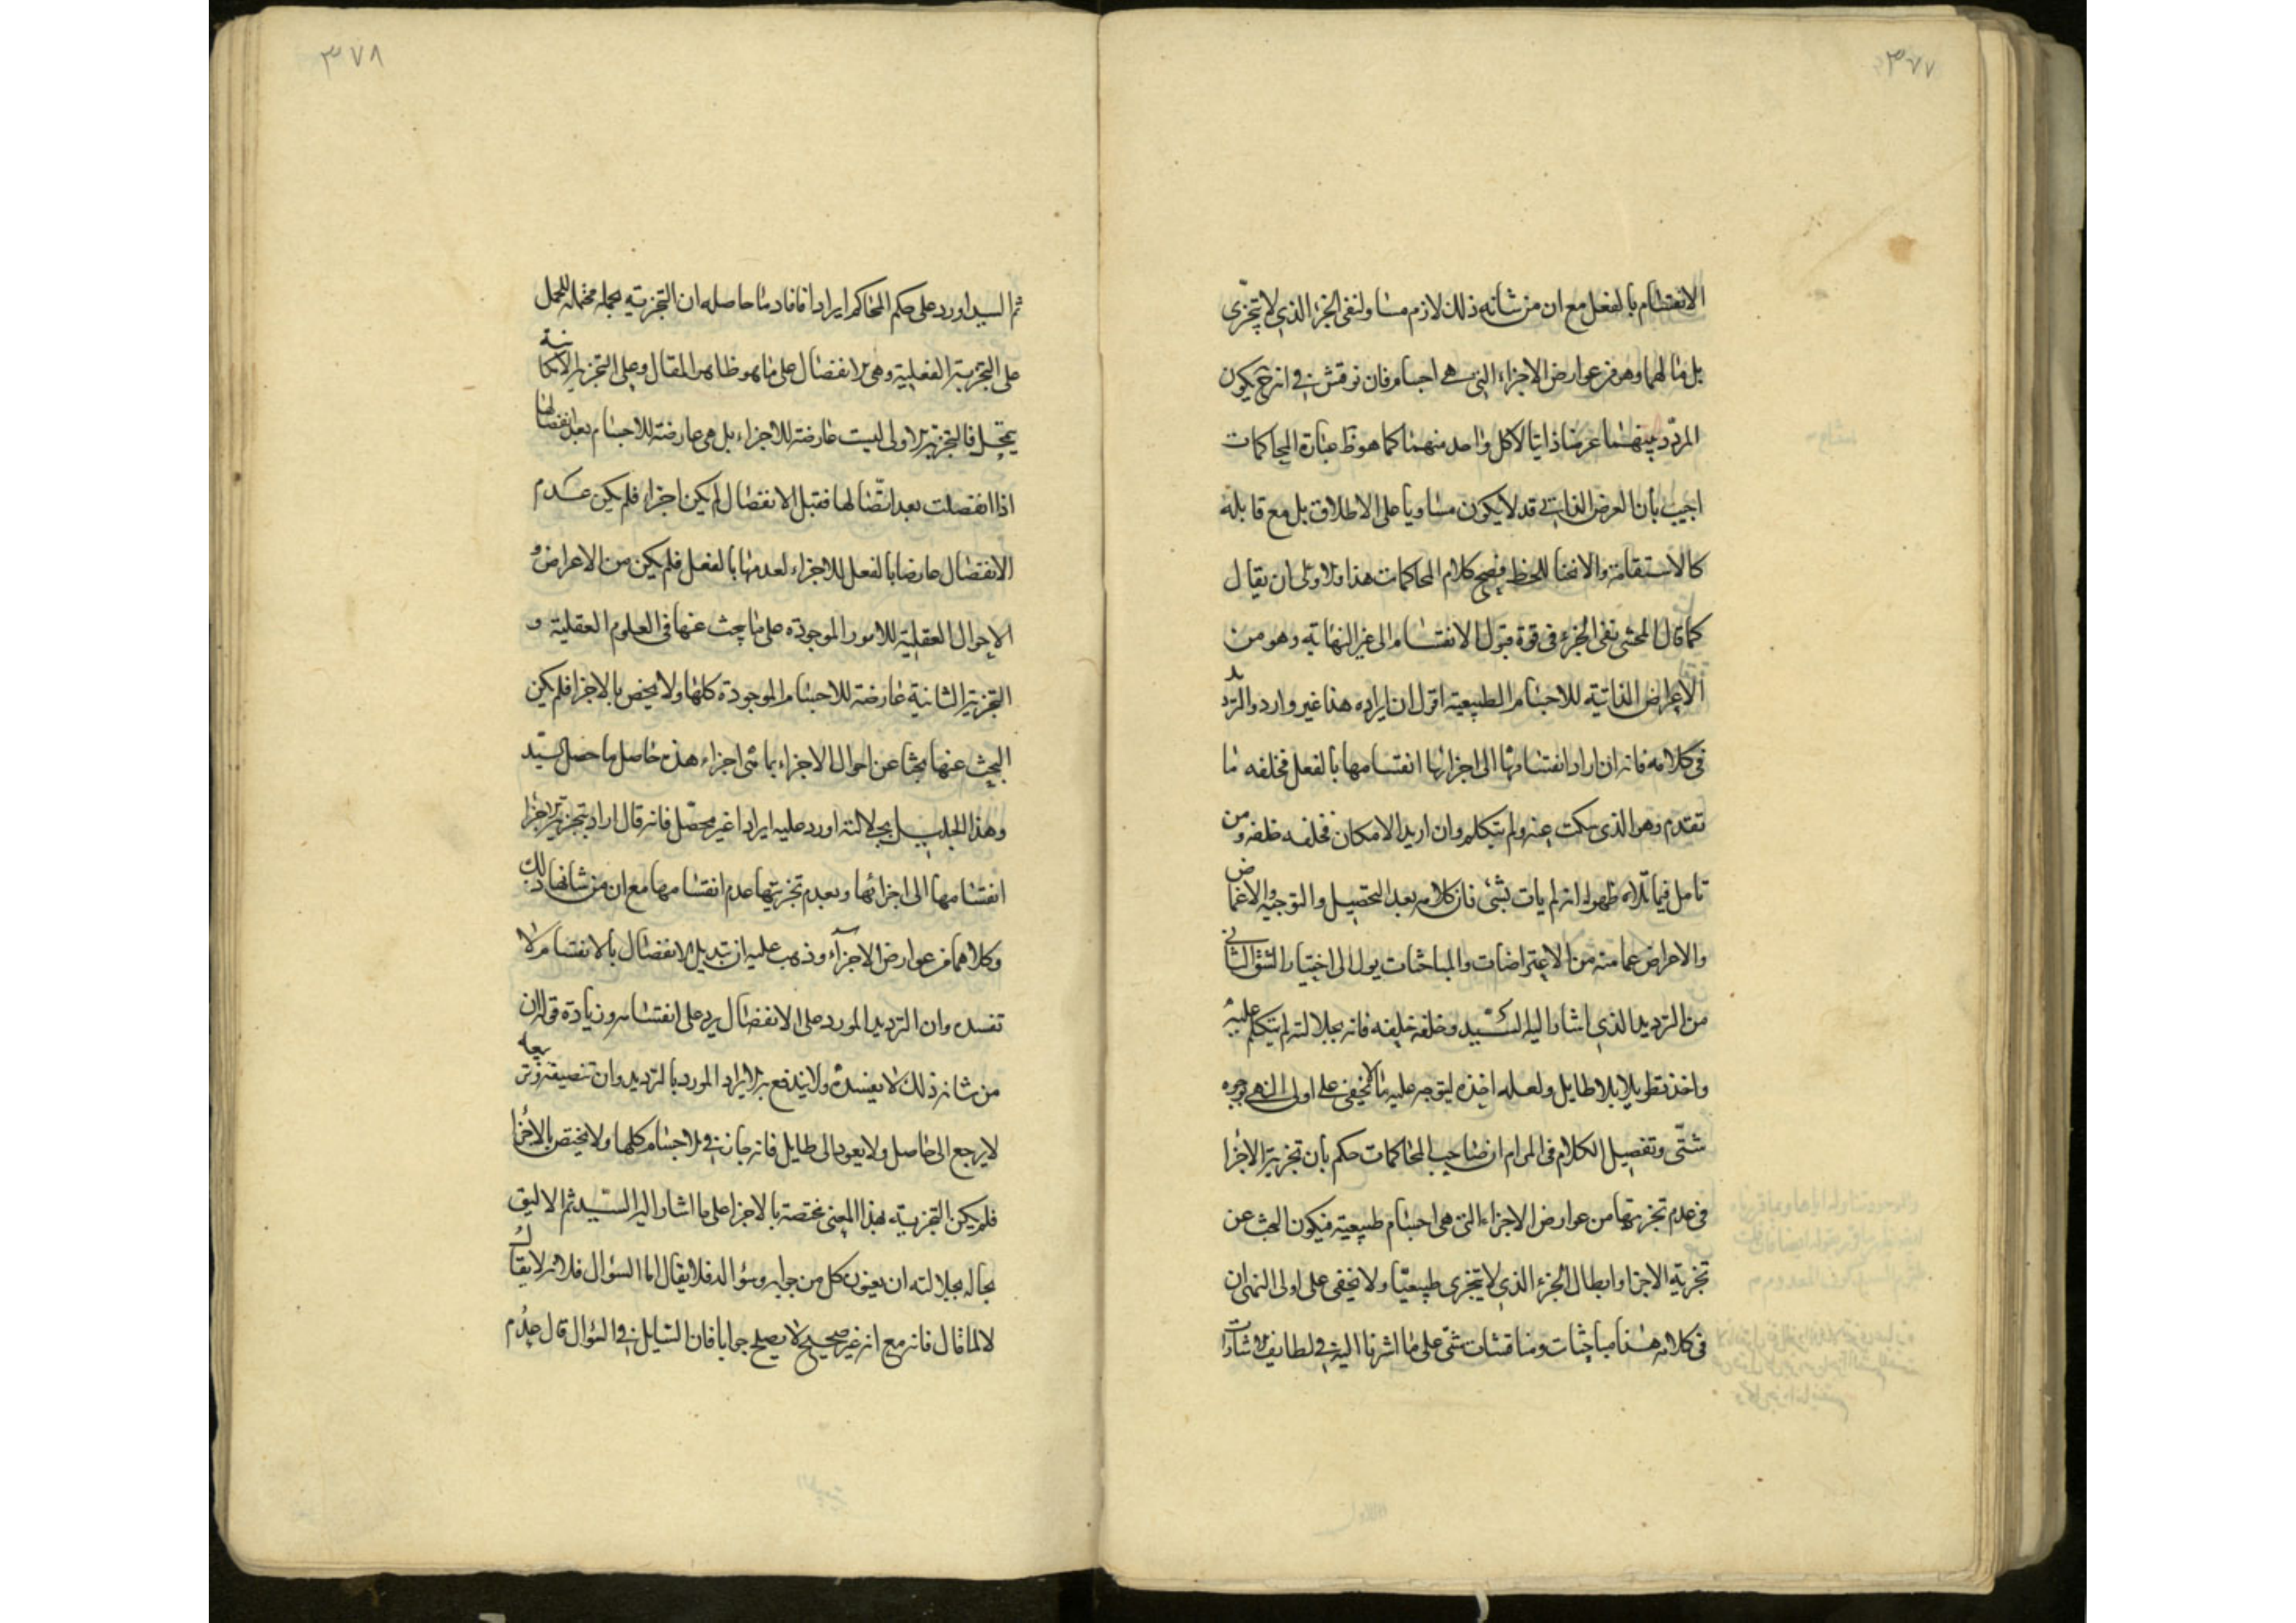 ٣٧٧
الانقسام بالفعل مع ان من شانه ذلك لازم مساو لنفى الجزء الذى لا يتجزى
بل مالهما وهو من عوارض الاجزاء التى هى اجسام فان نوقش فى انه ح يكون
المردد بينهما عرضا ذاتيا لا كل واحد منهما كما هو ظ عبارة المحاكمات
اجيب بأن العرض الذاتى قد لا يكون مساويا على الاطلاق بل مع قابله
كالاستقامة والانحنا للخط فيصح كلام المحاكمات هذا والاولى ان يقال
كما قال المحشى نفى الجزء فى قوة قبول الانقسام الى غير النهاية وهو من
الاعراض الذاتية للاجسام الطبيعية اقول ان ايراده هذا غير وارد والترديد
فى كلامه فانه ان اراد انقسامها الى اجزائها انقسامها بالفعل فخلفه ما
تقدم وهو الذى سكت عنه ولم يتكلم وان اريد الامكان فخلفه خلفه ومن
تامل فيما تلاه ظهر له انه لم يات بشئ فان كلامه بعد التحصيل والتوجيه والاغماض
والاعراض عما منه من الاعتراضات والمباحثات يول الى اختيار الشق الثانى
من الترديد الذى اشار اليه السيد وخلفه خليفه فانه بجلالته لم يتكلم عليه
واخذ تطويلا بلا طايل ولعله اخذه ليتوجه عليه ما لا يخفى على اولى النهى بوجوه
شتى وتفصيل الكلام فى المرام ان صاحب المحاكمات حكم بأن تجزية الاجزا
فى عدم تجزيتها من عوارض الاجزاء التى هى اجسام طبيعية فيكون البحث عن
تجزية الاجزا وابطال الجزء الذى لا يتجزى طبيعيا ولا يخفى على اولى النهى ان
فى كلامه هذا مباحثات ومناقشات شتى على ما اشرنا اليه فى لطايف الاشارات
٣٧٨
ثم السيد اورد على حكم المحاكم ايرادا فافاد ما حاصله ان التجزية مجملة محتملة للحمل
على التجزية الفعلية وهى الانفصال على ما هو ظاهر المقال وعلى التجزية الامكانية
فالتجزية الاولى ليست عارضة للاجزاء بل هى عارضة للاجسام بعد انفصالها
اذا انفصلت بعد اتصالها فقبل الانفصال لم يكن اجزاء فلم يكن عدم
الانفصال عارضا بالفعل للاجزاء لعدمها بالفعل فلم يكن من الاعراض و
الاحوال العقلية للامور الموجودة على ما يبحث عنها فى العلوم العقلية و
التجزية الثانية عارضة للاجسام الموجودة كلها ولا يخص بالاجزا فلم يكن
البحث عنها بحثا عن احوال الاجزاء بما هى اجزاء هذه حاصل ما حصل السيد
وهذا الجليل بجلالته اورد عليه ايرادا غير محصل فانه قال اراد بتجزية الاجزا
انقسامها الى اجزائها وبعدم تجزيتها عدم انقسامها مع ان من شانها ذلك
وكلاهما من عوارض الاجزآء وذهب عليه ان تبديل الانفصال بالانقسام لا
تفسده وان الترديد المورد على الانفصال يرد على انقسامه وزيادة قوله ان
من شانه ذلك لا يفسده ولا يندفع به الايراد المورد بالترديد وان
لا يرجع الى حاصل ولا يعود الى طايل فانه جار فى الاجسام كلها ولا يختص بالاجزا
فلم يكن التجزية بهذا المعنى مختصة بالاجزا على ما اشار اليه السيد ثم الاليق
بحاله بجلالته ان يعنون كل من جوابه وسؤاله فلا يقال اما السؤال فلانه لا يقال
لا لما قال فانه مع انه غير صحيح لا يصلح جوابا فان السايل فى السؤال قال عدم